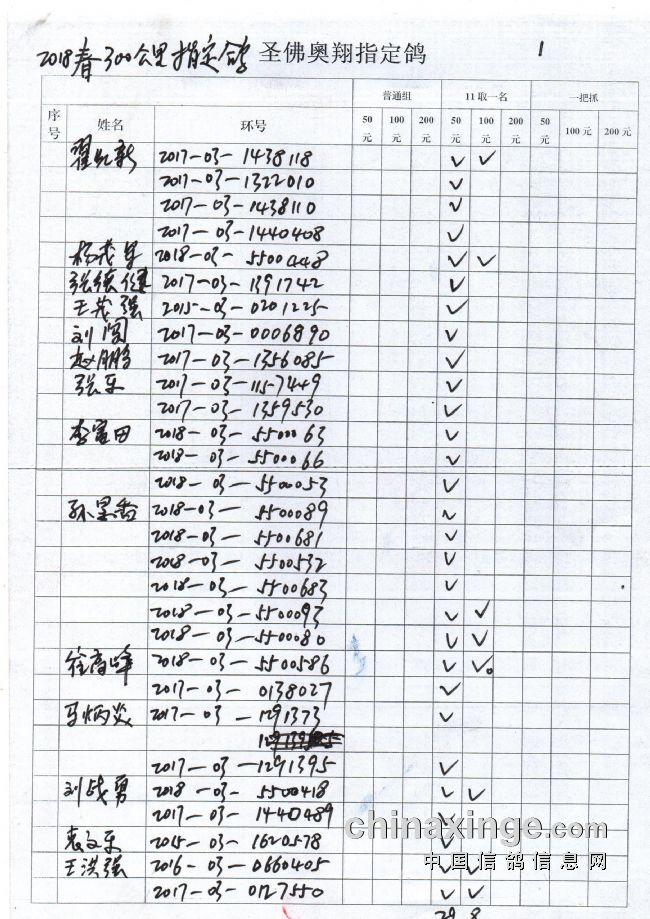 2018春300公里指定鸽 圣佛奥翔指定鸽 1
普通组 11取一名 一把抓
序号 姓名 环号 50元 100元 200元 50元 100元 200元 50元 100元 200元
2017-03-1438118 ✓ ✓
2017-03-1322010 ✓
2017-03-1438110 ✓
2017-03-1440408 ✓
2018-03-5500448 ✓ ✓
张德健 2017-03-1391742 ✓
王茂强 2015-03-0201225 ✓
刘闯 2017-03-0006890 ✓
赵鹏 2017-03-1356085 ✓
张乐 2017-03-1157449 ✓
2017-03-1359530 ✓
李富田 2018-03-5500063 ✓
2018-03-5500066 ✓
2018-03-5500053 ✓
2018-03-5500089 ✓
2018-03-5500681 ✓
2018-03-5500532 ✓
2018-03-5500683 ✓
2018-03-5500093 ✓ ✓
2018-03-5500080 ✓ ✓
徐高峰 2018-03-5500586 ✓ ✓
2017-03-0138027 ✓
马炳炎 2017-03-1291373 ✓
2017-03-1291395 ✓
刘战勇 2018-03-5500418 ✓ ✓
2017-03-1440489 ✓
袁文乐 2015-03-1620578 ✓
王洪强 2016-03-0660405 ✓ ✓
2017-03-0127550 ✓ ✓
29 8
chinaxinge.com
中国信鸽信息网